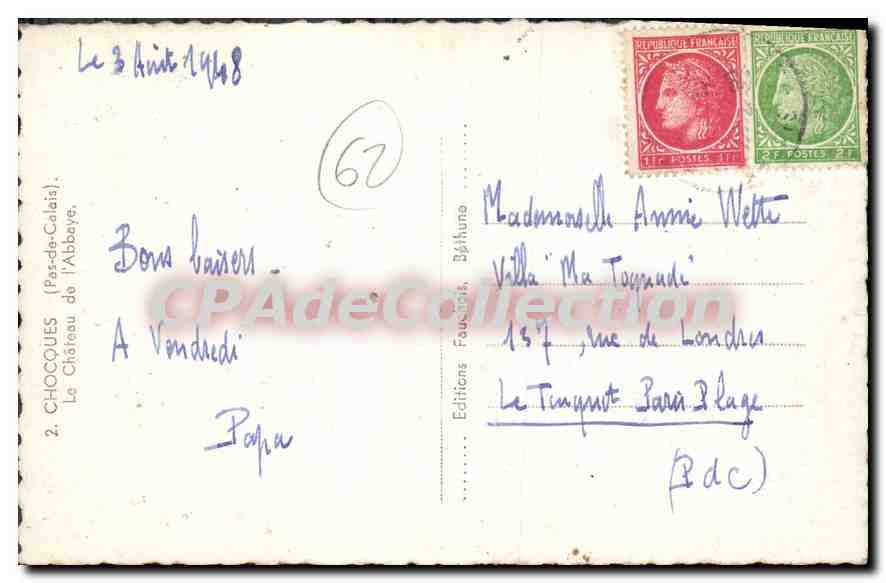 Le 3 Août 1948
62
REPUBLIQUE FRANÇAISE
1 Fr POSTES 1 Fr
REPUBLIQUE FRANÇAISE
2 F. POSTES 2 F.
2. CHOCQUES (Pas-de-Calais).
Le Château de l'Abbaye.
Bons baisers
A Vendredi
Papa
Editions Fauchois, Béthune
Mademoiselle Annie Wette
Villa "Ma"
137, rue de Londres
Le Touquet Paris Plage
(P d C)
CPAdeCollection